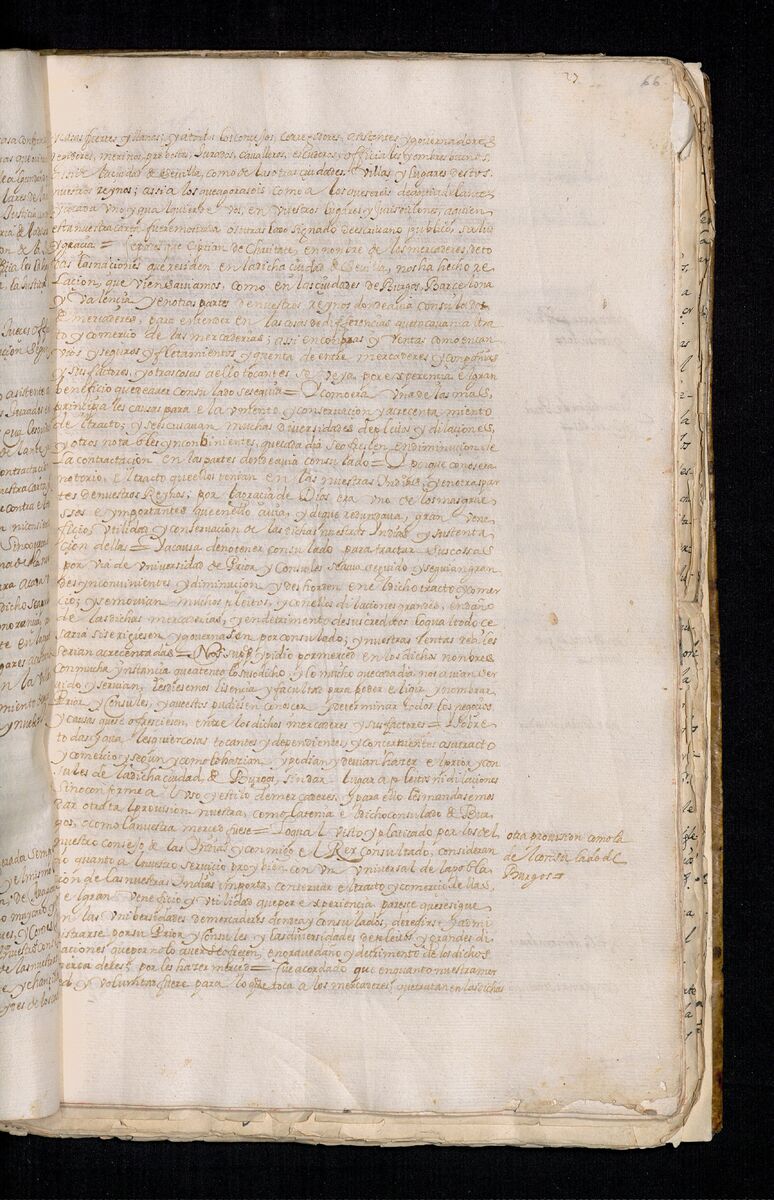 27 66
y casas fuertes y llanas; y a todos los concejos, corregidores, asistentes y governadores
regidores, merinos, prebostes, Jurados, cavalleros, escuderos, officiales y ombres buenos
ciudad de Sevilla, como de las otras ciudades Villas y lugares destos
nuestros reynos; assi a los que agora sois como a los que sereis de aqui adelante
y a cada uno y qualquier de vos, en vuestros lugares y jurisdiciones, a quien
esta nuestra carta fuere mostrada o su traslado signado de escrivano publico, salud
y gracia = sepades que Ciprian de Charitate, en nonbre de los mercaderes, de to
das las naciones que residen en la dicha ciudad de Sevilla, nos ha hecho re
lacion, que bien saviamos, como en las ciudades de Burgos, Barcelona
y Valencia y en otras partes de nuestros reynos donde avia consulados
de mercaderes, para entender en las cosas de differencias que tocavan a tra
to y comercio de las mercaderias; assi en conpras y Ventas como en can
vios y seguros y fletamientos y quenta de entre mercaderes y conpañias
y sus factores, y otras cosas a ello tocantes se veya por experiencia el gran
beneficio que de aver Consulado se seguia = y como era Una de las mas
principales causas para el aumento, y conservacion y acrecentamiento
de el tracto; y se escusavan muchas diversidades de pleitos y dilaciones
y otros notables ynconbinientes, que cada dia se ofrescen en diminucion de
la contractacion en las partes donde avia consulado = y porque como era
notorio, el tracto que ellos tenian en las nuestras Indias, y en otras par
tes de nuestros Reynos; por la gracia de Dios era uno de los mas grue
ssos e ymportantes que en ello avia, y de que redundava, gran vene
ficio, utilidad y conservacion de las dichas nuestras Indias y sustenta
cion dellas = y a causa de no tener consulado para tractar sus cossas
por via de Universidad de Prior y Consules se avia seguido y seguian gran
des ynconvinientes y diminucion y deshorden en el dicho tracto y comer
cio; y se movian muchos pleitos, y con ellos dilaciones grandes, en daño
de las dichas mercaderias, y en detrimento de sus creditos lo qual todo ce
saria si se rigiesen y governasen por consulado; y nuestras rentas reales
serian acrecentadas = Nos supplico y pidio por merced en los dichos nonbres
con mucha ynstancia que atento lo susodicho y lo mucho que cada dia nos avian ser
vido y servian, les diesemos licencia y facultad para poder eligir y nonbrar
Prior y Consules, y que estos pudiesen conoscer y determinar todos los negocios
y causas que se ofresciesen, entre los dichos mercaderes y sus factores = y sobre
todas y qualesquier cosas tocantes y dependientes y concernientes a su tracto
y comercio y segun y como lo harian y podian y devian hazer el prior y con
sules de la dicha ciudad, de Burgos, sin dar lugar a pleitos ni dilaciones
sino conforme al Uso y estilo de mercaderes, y para ello les mandasemos
dar otra tal provision nuestra, como la tenia el dicho consulado de Bur
gos, o como la nuestra merced fuese = Lo qual visto y platicado por los del
nuestro Consejo de las Indias y conmigo el Rey Consultado, consideran
do quanto a nuestro servicio pro y bien con un universal de la pobla
cion de las nuestras Indias importa, conservar el trato y comercio dellas,
e el gran veneficio y utilidad que por experiencia paresce que se sigue
en las unibersidades de mercaderes donde ay consulados, de regirse y admi
nistrarse por su Prior y Consules y las diversidades de pleitos y grandes di
laciones que por no lo aver se ofrescen, en gran daño y detrimento de los dichos
mercaderes; por les hazer merced = fue acordado que en quanto nuestra mer
ced y voluntad fuere para lo que toca a los mercaderes, que tratan en las dichas
otra provision como la
de el consulado de
Burgos =